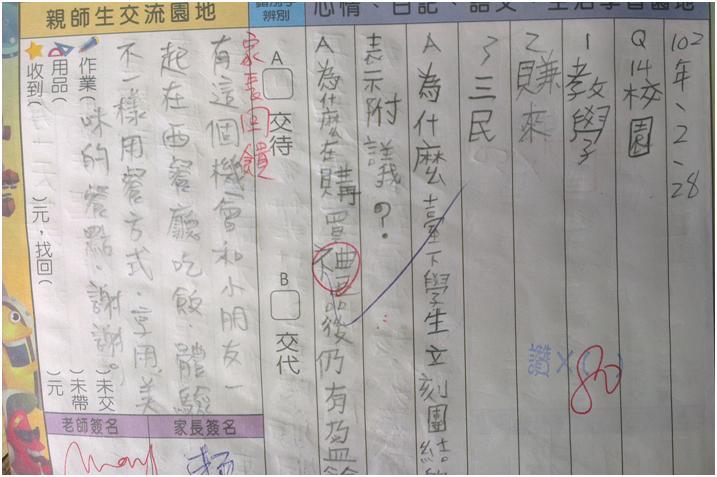 親師生交流園地
辨別
心情、日記、語文、生活學習園地
102年、2、28
Q14校園
1教學
2賺來
3三民
A為什麼臺下學生立刻團結
表示附議?
A為什麼在購買禮品後仍有盈餘
讚×( )
80
A □ 交待
B □ 交代
家長回饋
有這個機會和小朋友一
起在西餐廳吃飯.體驗
不一樣用餐方式.享用美
味的餐點.謝謝。
作業( )未交
用品( )未帶
收到( )元,找回( )元
老師簽名
家長簽名
May